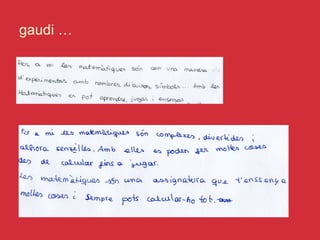 gaudi …
Pers a mi les matemàtiques són com una manera
d'experimentar amb nombres dibuixos, símbols... Amb les
Matemàtiques es pot aprendre, jugar i ensenyar.
Per a mi les matemàtiques són complexes, divertides i
alhora senzilles. Amb elles es poden fer moltes coses
des de calcular fins a jugar.
Les matemàtiques són una assignatura que t'enssenya
moltes coses i sempre pots calcular-ho tot.